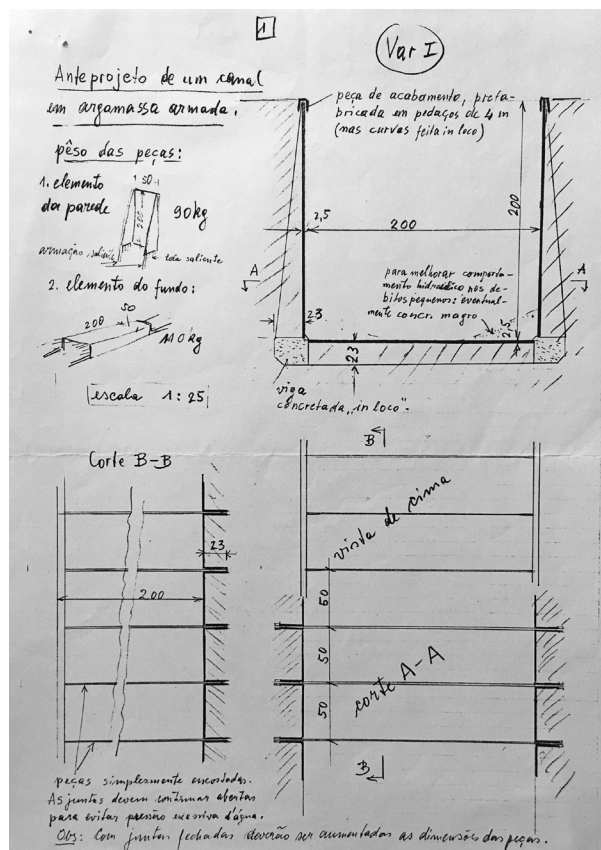 1
Var I
Anteprojeto de um canal
em argamassa armada.
pêso das peças:
1. elemento
da parede
50
200
90kg
armação saliente
tela saliente
2. elemento do fundo:
200
50
110 kg
escala 1:25
peça de acabamento, prefa-
bricada em pedaços de 4 m
(nas curvas feita in loco)
2,5
200
200
A
A
para melhorar comporta-
mento hidráulico nos dé-
bitos pequenos: eventual-
mente concr. magro
23
2,5
23
viga
concretada „in loco".
Corte B-B
23
200
B
vista de cima
50
50
50
corte A-A
B
peças simplesmente encostadas.
As juntas devem continuar abertas
para evitar pressão excessiva d'água.
Obs: Com juntas fechadas deverão ser aumentadas as dimensões das peças.